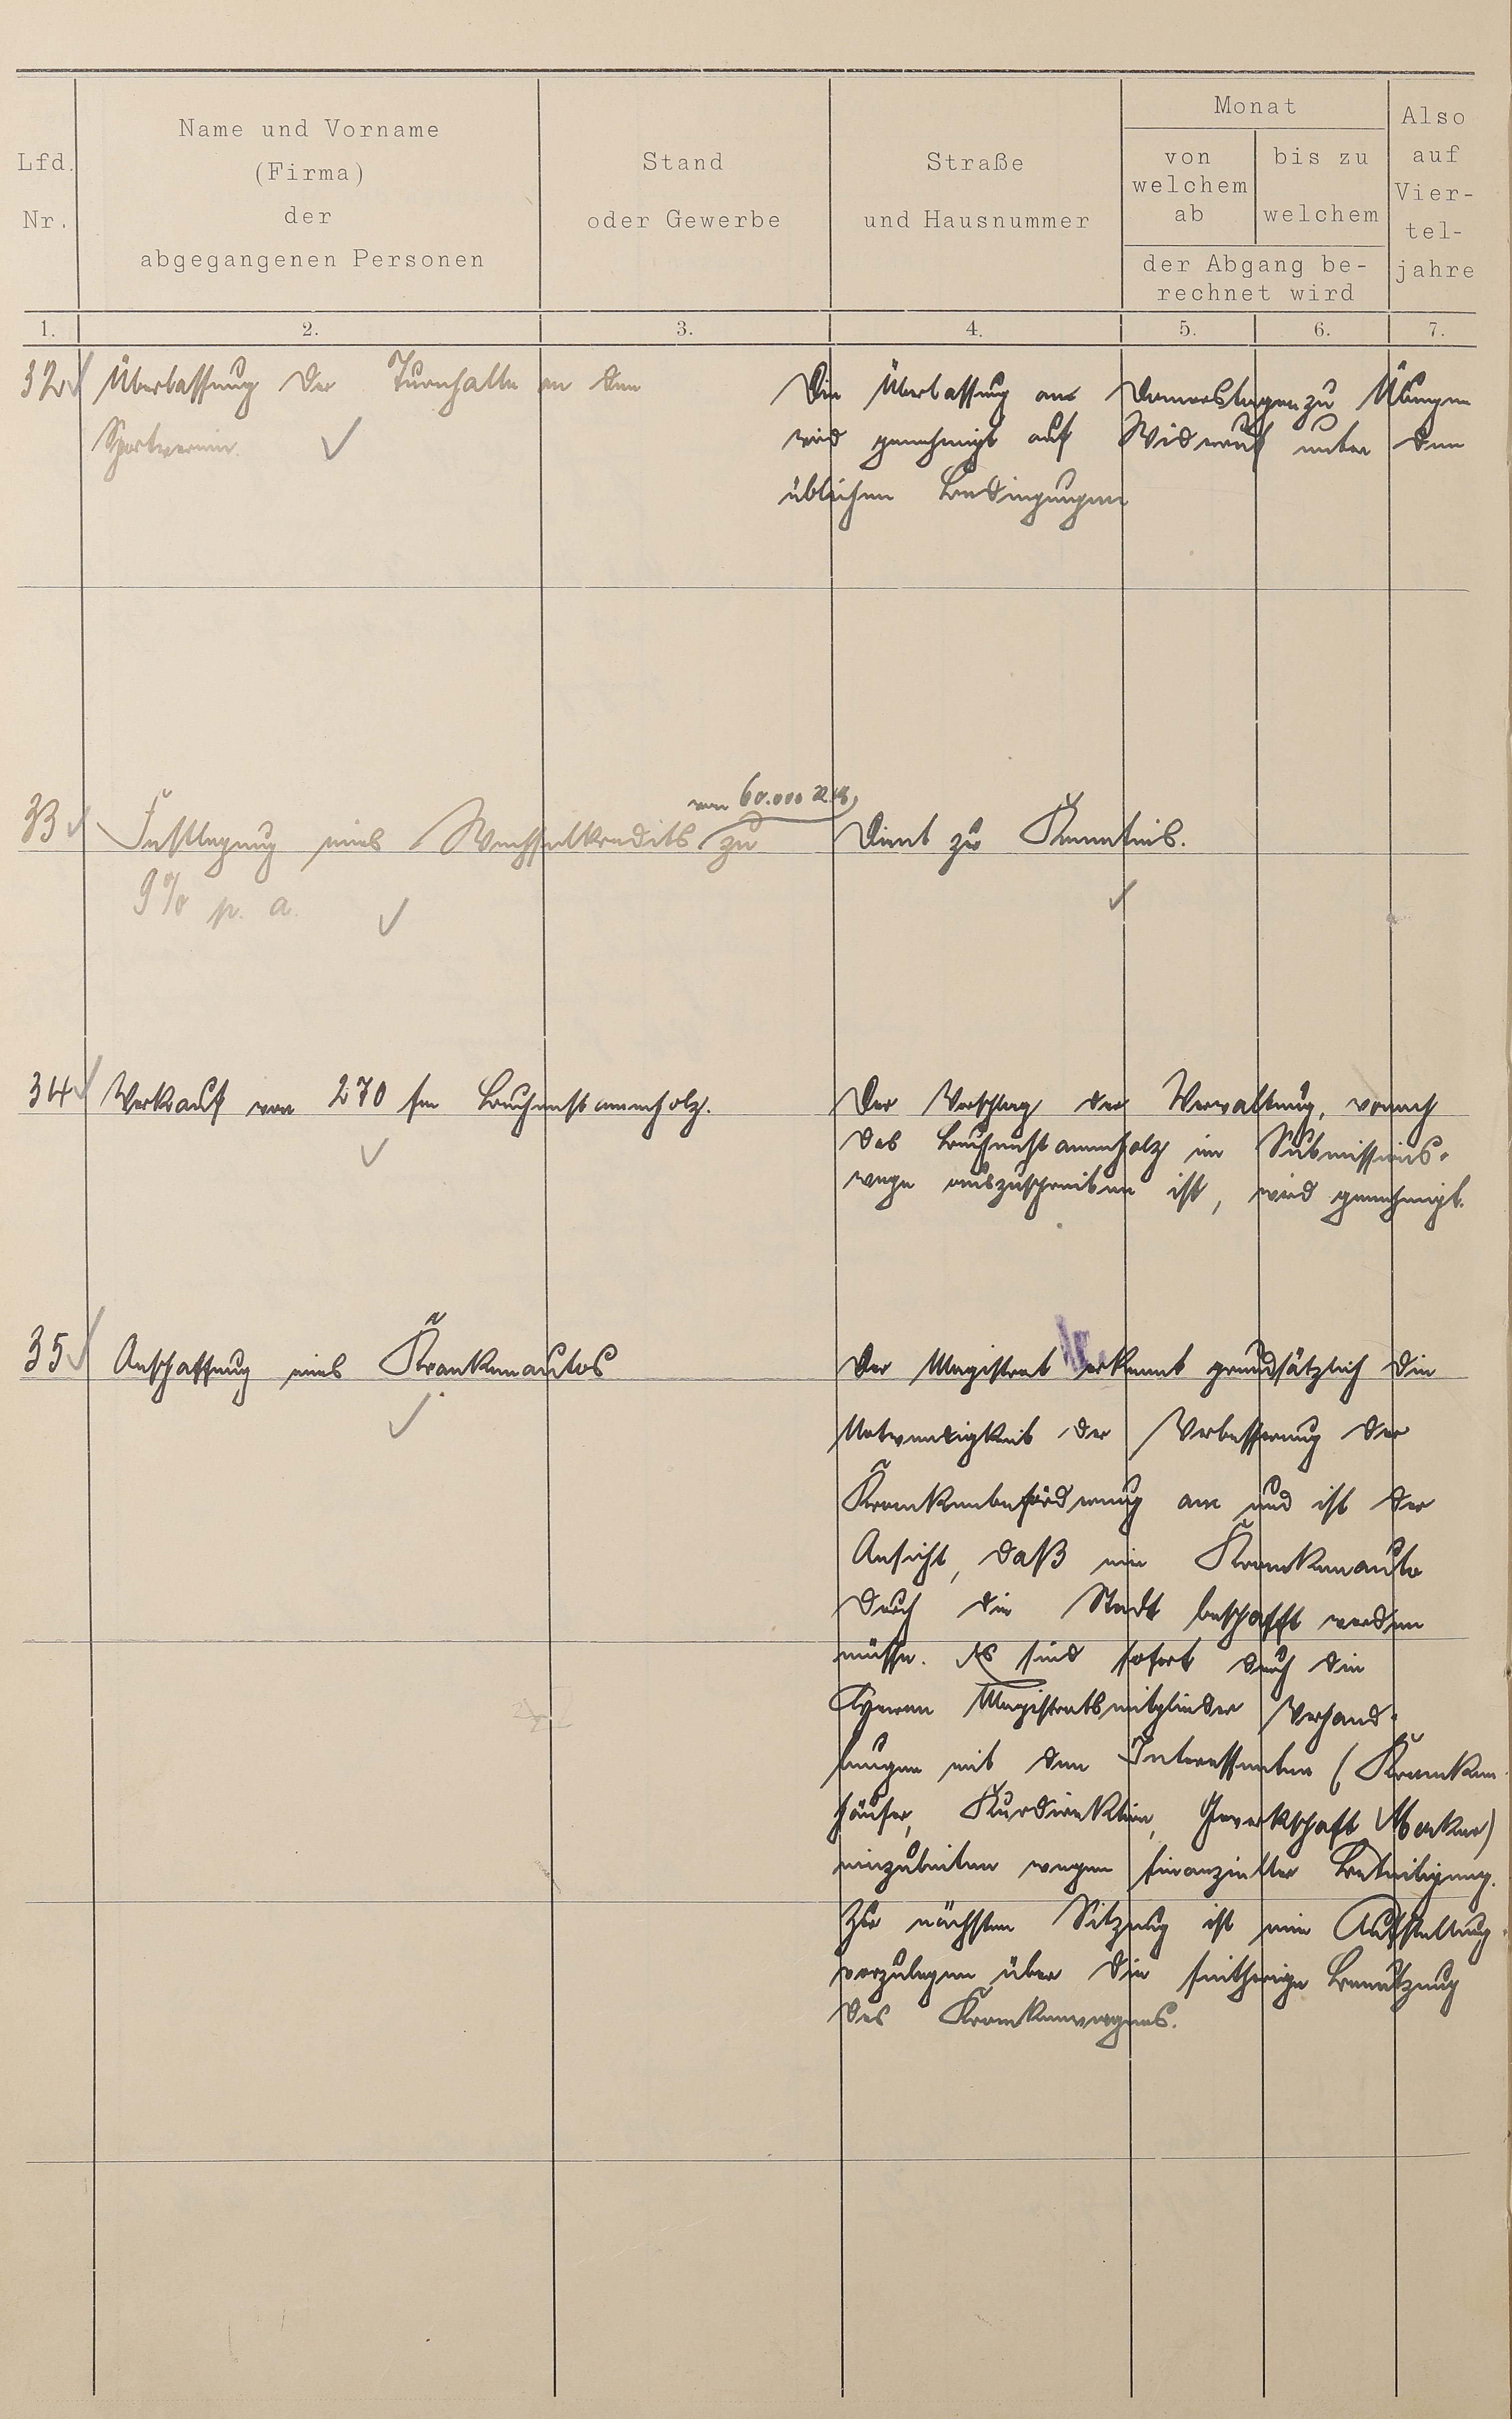 Lfd. Nr.
Name und Vorname
(Firma)
der
abgegangenen Personen
Stand
oder Gewerbe
Straße
und Hausnummer
Monat
von
welchem
ab
bis zu
welchem
der Abgang be-
rechnet wird
Also
auf
Vier-
tel-
jahre
1. 2. 3. 4. 5. 6. 7.
32 Überlassung der Turnhalle an den
Sportverein.
Die Überlassung an Donnerstagen zu Übungen
wird genehmigt auf Widerruf unter den
üblichen Bedingungen
von 60.000 RM.
33 Festlegung eines Wechselkredits zu
9% p. a.
Dient zur Kenntnis.
34 Verkauf von 270 fm Buchenstammholz.
Der Vorschlag der Verwaltung, wonach
das Buchenstammholz im Submissions-
wege auszuschreiben ist, wird genehmigt.
35 Anschaffung eines Krankenautos
Der Magistrat erkennt grundsätzlich die
Notwendigkeit der Verbesserung der
Krankenbeförderung an und ist der
Ansicht, daß ein Krankenauto
durch die Stadt beschafft werden
müsse. Es sind sofort durch die
Herren Magistratsmitglieder Verhand-
lungen mit den Interessenten (Kranken-
häuser, Kurdirektion, Gewerkschaft
einzuleiten wegen finanzieller Beteiligung.
Zur nächsten Sitzung ist eine Aufstellung
vorzulegen über die seitherige Benutzung
des Krankenwagens.